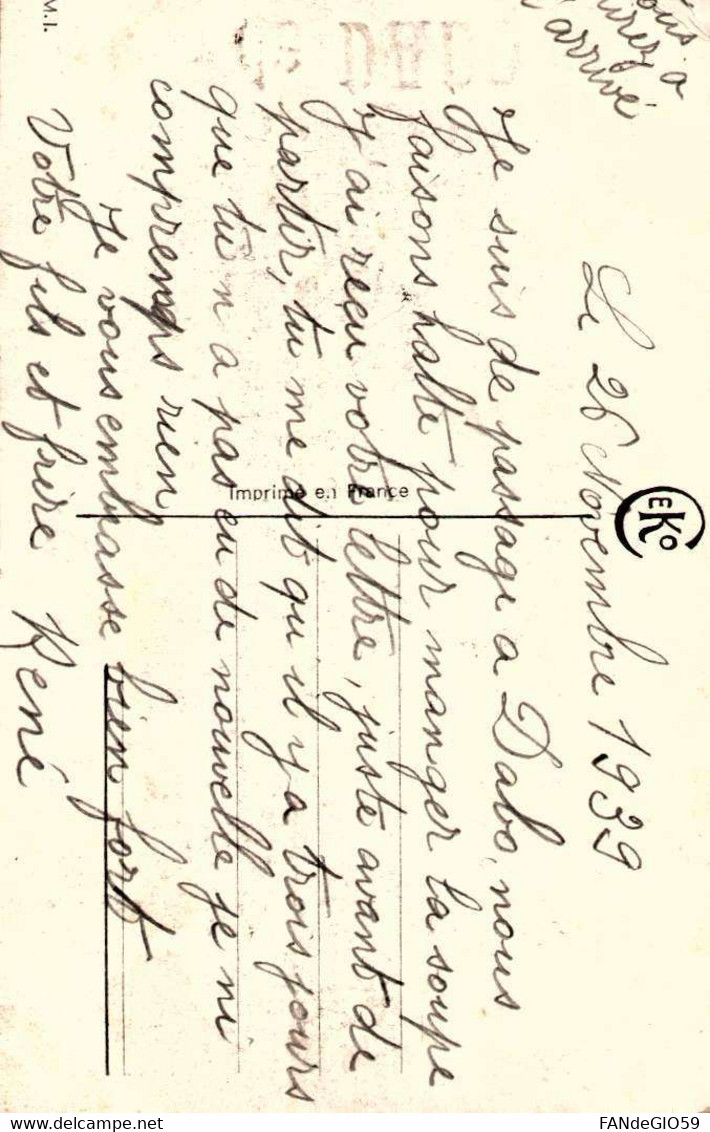 Le 26 Novembre 1939
Je suis de passage a Dabo, nous
faisons halte pour manger la soupe
J'ai reçu votre lettre, juste avant de
partir, tu me dit qu'il y a trois jours
que tu n a pas eu de nouvelle je ni
comprends rien
Je vous embrasse bien fort
Votre fils et frère René
arrivé
Imprimé en France
EKO
M.I.
FANdeGIO59